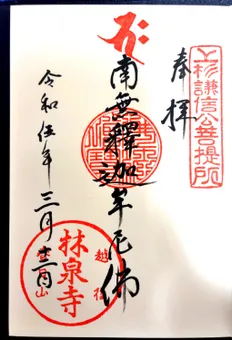 上杉謙信公菩提所
奉拝
南無釋迦牟尼佛
令和伍年三月
越後
林泉寺